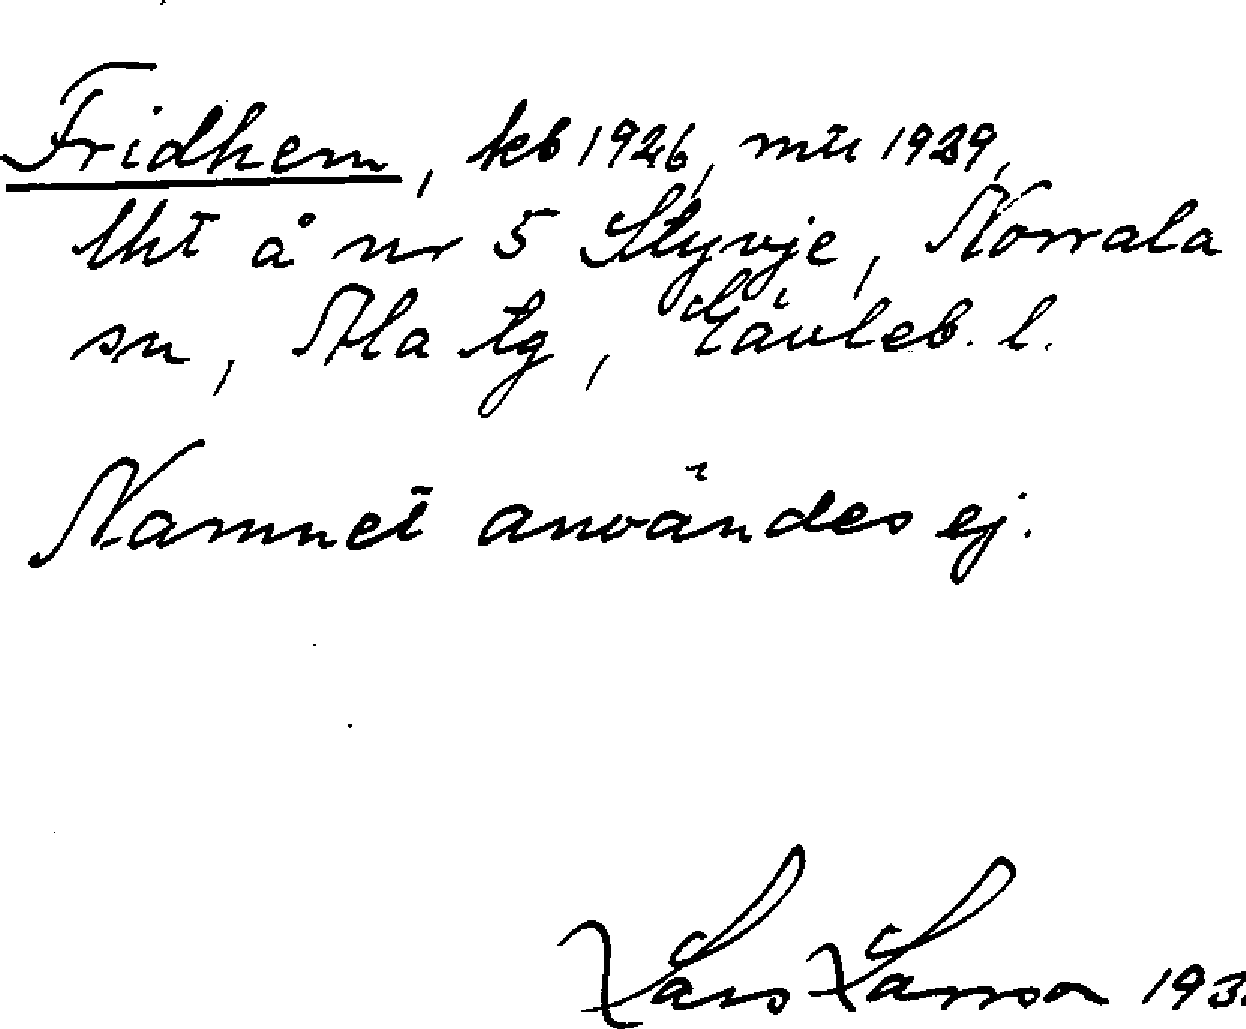 Fridhem, keb 1926, mtu 1929,
lht å nr 5 Styvje, Norrala
sn, Ala tg, Gävleb. l.
Namnet användes ej.
Lars Larsson 193